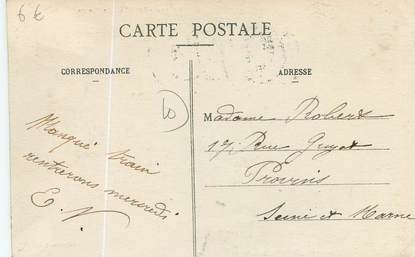 6 €
CARTE POSTALE
CORRESPONDANCE
ADRESSE
Manqué train
rentrerons mercredi
E. V.
Madame Robert
17, Rue Guyot
Provins
Seine et Marne